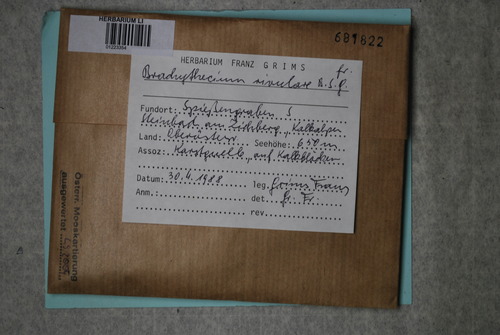 HERBARIUM LI
689822
HERBARIUM FRANZ GRIMS
fr.
Brachythecium rivulare B.S.G.
Fundort: Spießengraben S
Steinbach am Ziehberg, Kalkalpen
Land: Oberösterr. Seehöhe: 650 m
Assoz: Karstquelle, auf Kalkblöcken
Datum: 30.4.1988 leg. Grims Franz
Anm.: det. Gr. Fr.
rev.
Österr. Mooskartierung
ausgewertet